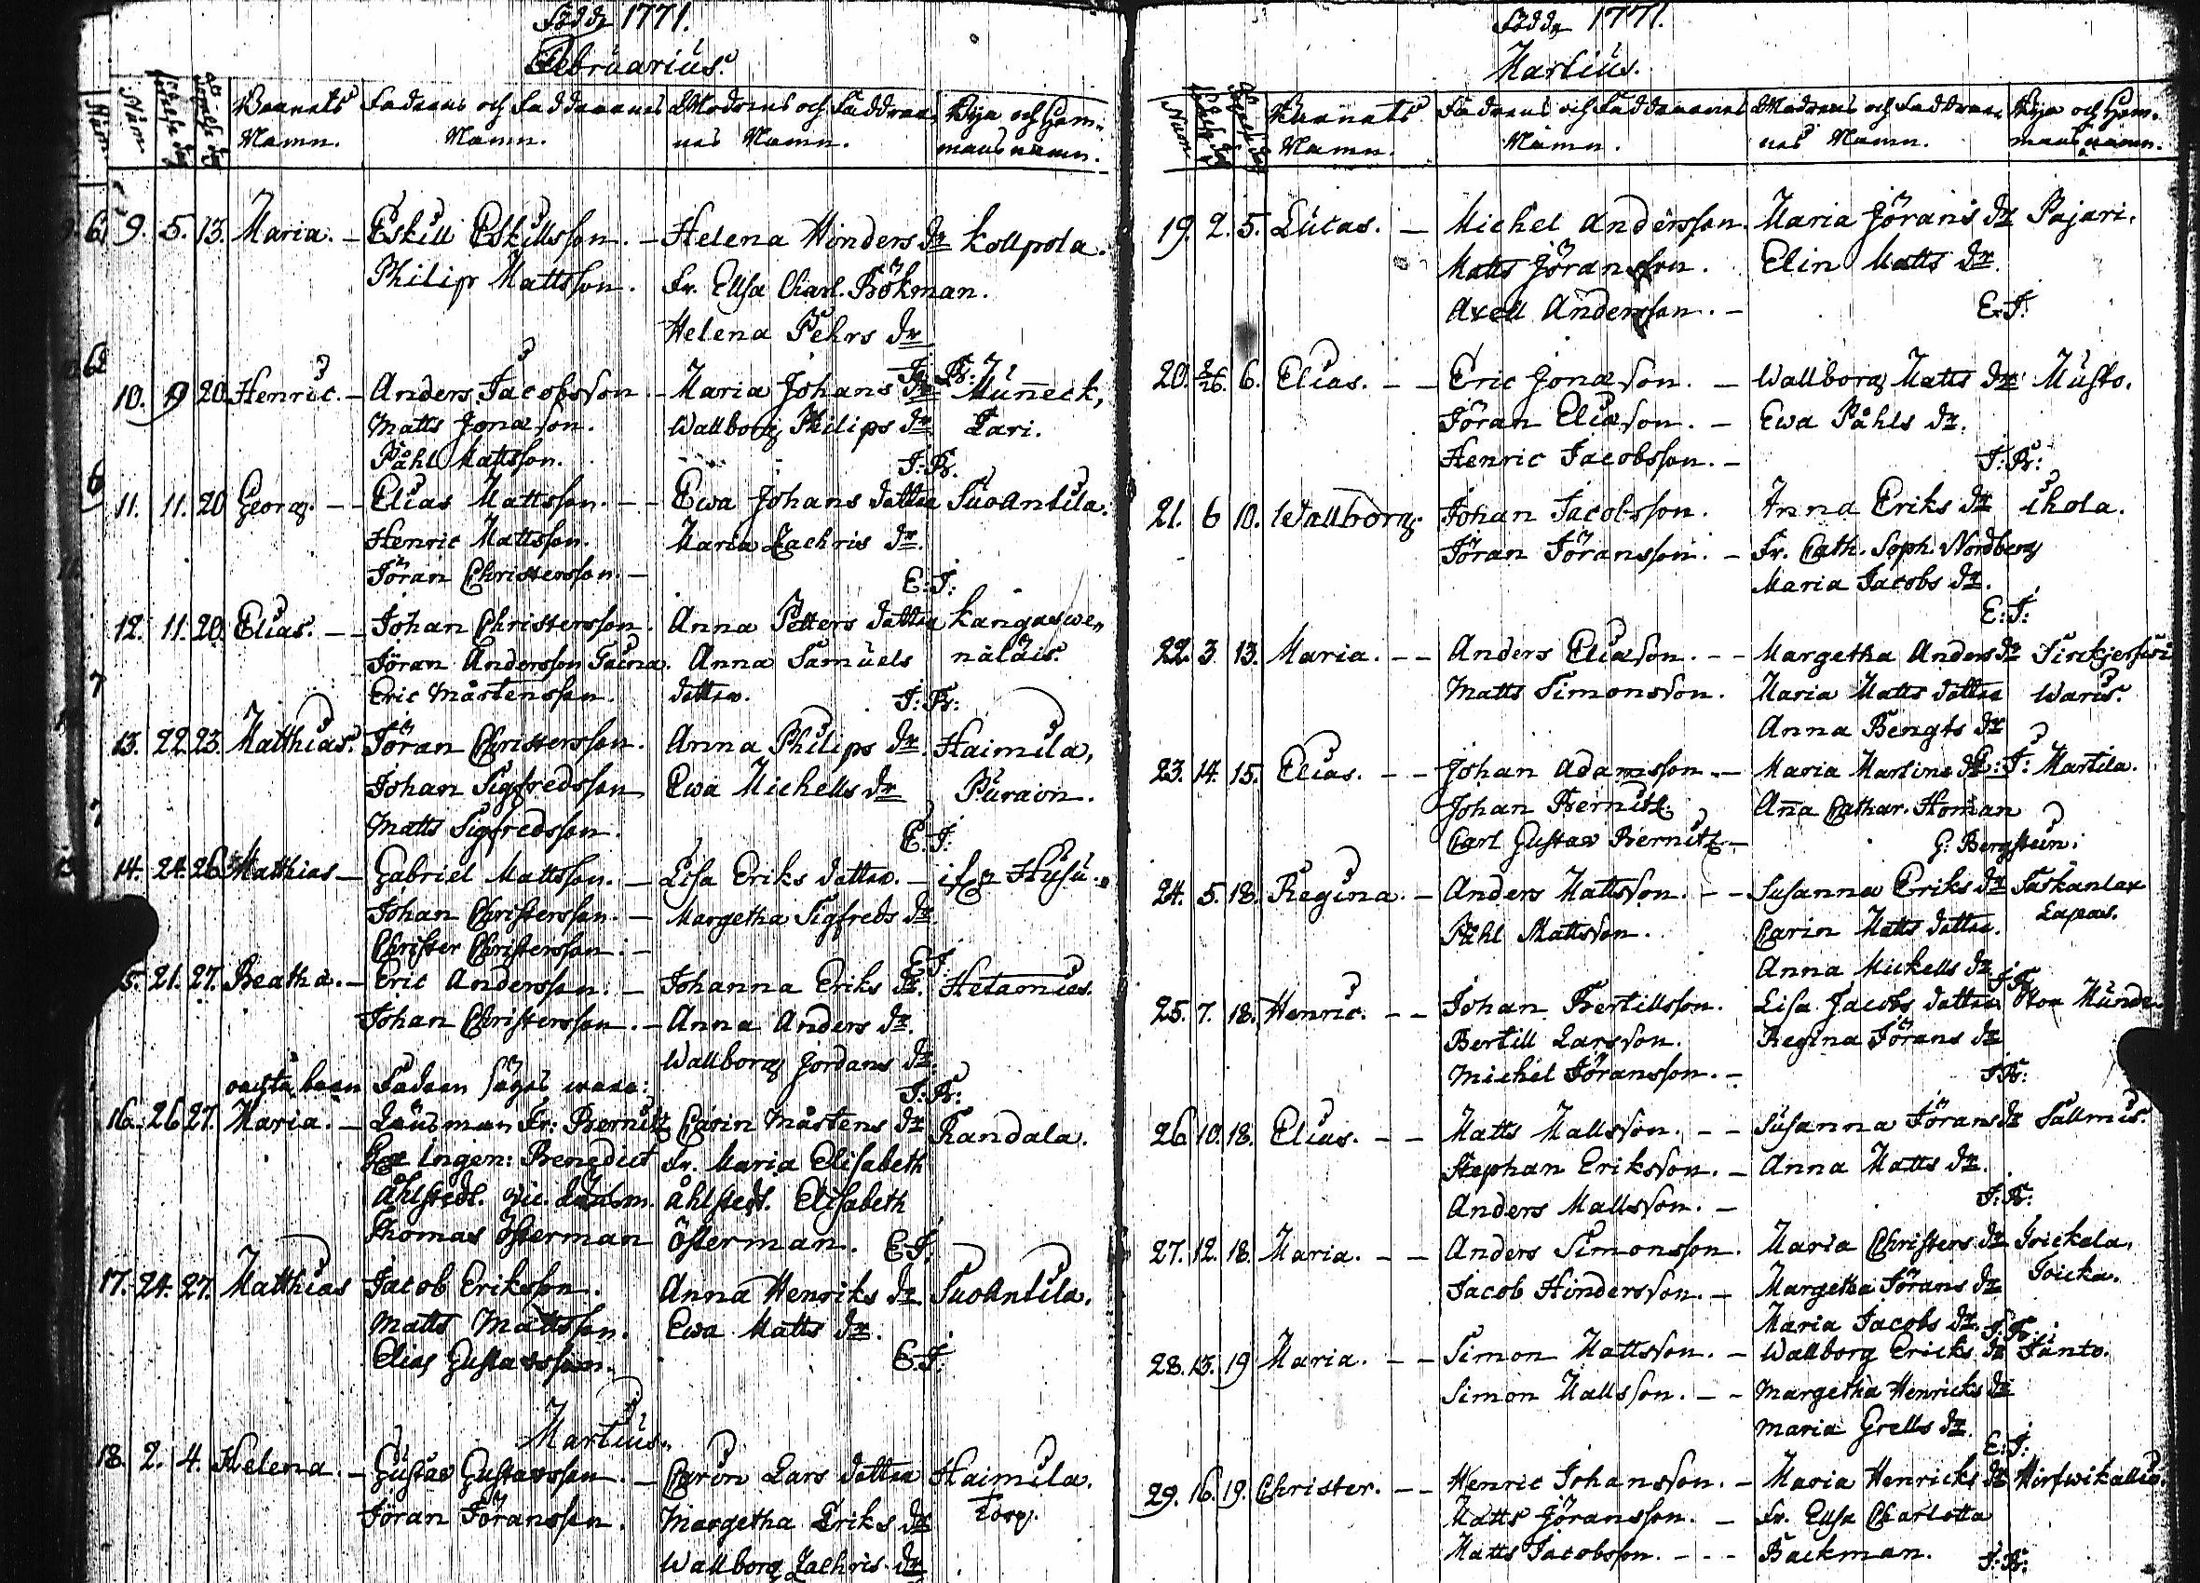 Födde 1771.
Februarius.
Barnets Fadrens och Faddrarnes Modrens och Faddrar- Bya och Hem-
Namn. Namn. nes Namn. mans namn.
9. 5. 13. Maria. – Eskill Eskillsson. – Helena Hinders dr Kollpola.
Philip Mattsson. Fr. Ellsa Charl. Bökman.
Helena Pehrs dr
J: B:
10. 19 20 Henric. – Anders Jacobsson. – Maria Johans dr
Matts Jonæson. Wallborg Philips dr Lari.
Påhl Mattsson. J: B.
11. 11. 20 Georg. – Elias Mattsson. – – Ewa Johans dotter Suoanttila.
Henric Mattsson. Maria Zachris dr.
Jöran Christersson. – E: J:
12. 11. 20. Elias. – – Johan Christersson. Anna Petters dotter Kangaswe-
Jöran Andersson Anna Samuels
Eric Mårtensson. dotter. J: B:
13. 22 23. Matthias. Jöran Christersson. Anna Philips dr. Haimila,
Johan Sigfredsson Ewa Michells dr
Matts Sigfredsson. E: J:
14. 24. 26 Matthias – Gabriel Mattsson. – Lisa Eriks dotter. – Husu.
Johan Christersson. – Margetha Sigfreds dr
Christer Christersson. –
E J:
15. 21. 27. Beatha. – Eric Andersson. – Johanna Eriks dr.
Johan Christersson. – Anna Anders dr.
Wallborg Jordans dr.
oächta barn Fadren säges wara: J: B:
16. 26 27. Maria. – Länsman Fr: Bernitz Carin Mårtens dr Kandala.
Ingen: Benedict Fr. Maria Elisabeth
Åhlstedt. Åhlstedt. Elisabeth
Thomas Österman Österman. E: J:
17. 24. 27. Matthias Jacob Eriksson. Anna Henriks dr Suoanttila.
Matts Mattsson. Ewa Matts dr.
Elias Gustavsson. E: J:
Martius.
18. 2. 4. Helena. – Gustav Gustavsson. – Carin Lars dotter Haimila.
Jöran Jöransson. Margetha Eriks dr Torp.
Wallborg Zachris dr
Födde 1771.
Martius.
Barnets Fadrens och Faddrarnes Modrens och Faddrar- Bya och Hem-
Namn. Namn. nes Namn. mans namn.
19. 2. 5. Lucas. – Michel Andersson. Maria Jörans dr Pajari.
Matts Jöransson. Elin Matts dr.
Axell Andersson. – E: J:
20. 6. Elias. – – Eric Jonæson. – Wallborg Matts dr Musto.
Jöran Eliæson. – Ewa Påhls dr.
Henric Jacobsson. – J: B:
21. 6 10. Wallborg. Johan Jacobsson. Anna Eriks dr Ihola.
Jöran Jöransson. – Fr. Cath. Soph. Nordberg
Maria Jacobs dr.
E: J:
22. 3. 13. Maria. – – Anders Eliæson. – – Margetha Anders dr
Matts Simonsson. Maria Matts dotter Waris.
Anna Bengts dr
23. 14. 15. Elias. – – Johan Adamsson. – Maria Martins dr E: J: Martila.
Johan Bernitz. Anna Cathar. Homan
Carl Gustav Bernitz – G: Bergstein:
24. 5. 18. Regina. – Anders Mattsson. – – Susanna Eriks dr
Påhl Mattsson. Carin Matts dotter.
Anna Mickells dr
25. 7. 18. Henric. – – Johan Bertillsson. Lisa Jacobs dotter
Bertill Larsson. Regina Jörans dr
Michel Jöransson. – J: B:
26 10. 18. Elias. – – Matts Mattsson. – – Susanna Jörans dr Sallmis.
Stephan Eriksson. – Anna Matts dr.
Anders Mattsson. – J: B:
27. 12. 18. Maria. – – Anders Simonsson. Maria Christers dr Toickala,
Jacob Hindersson. – Margetha Jörans dr Toicka.
Maria Jacobs dr. J: B:
28. 13. 19 Maria. – – Simon Mattsson. – Wallborg Ericks dr
Simon Mattsson. – – Margetha Henricks dr
Maria Grells dr.
E: J:
29. 16. 19. Christer. – – Henric Johansson. – Maria Henricks dr Hirfwikallio.
Matts Jöransson. – Fr. Ellsa Charlotta
Matts Jacobsson. – – – Backman. J: B: